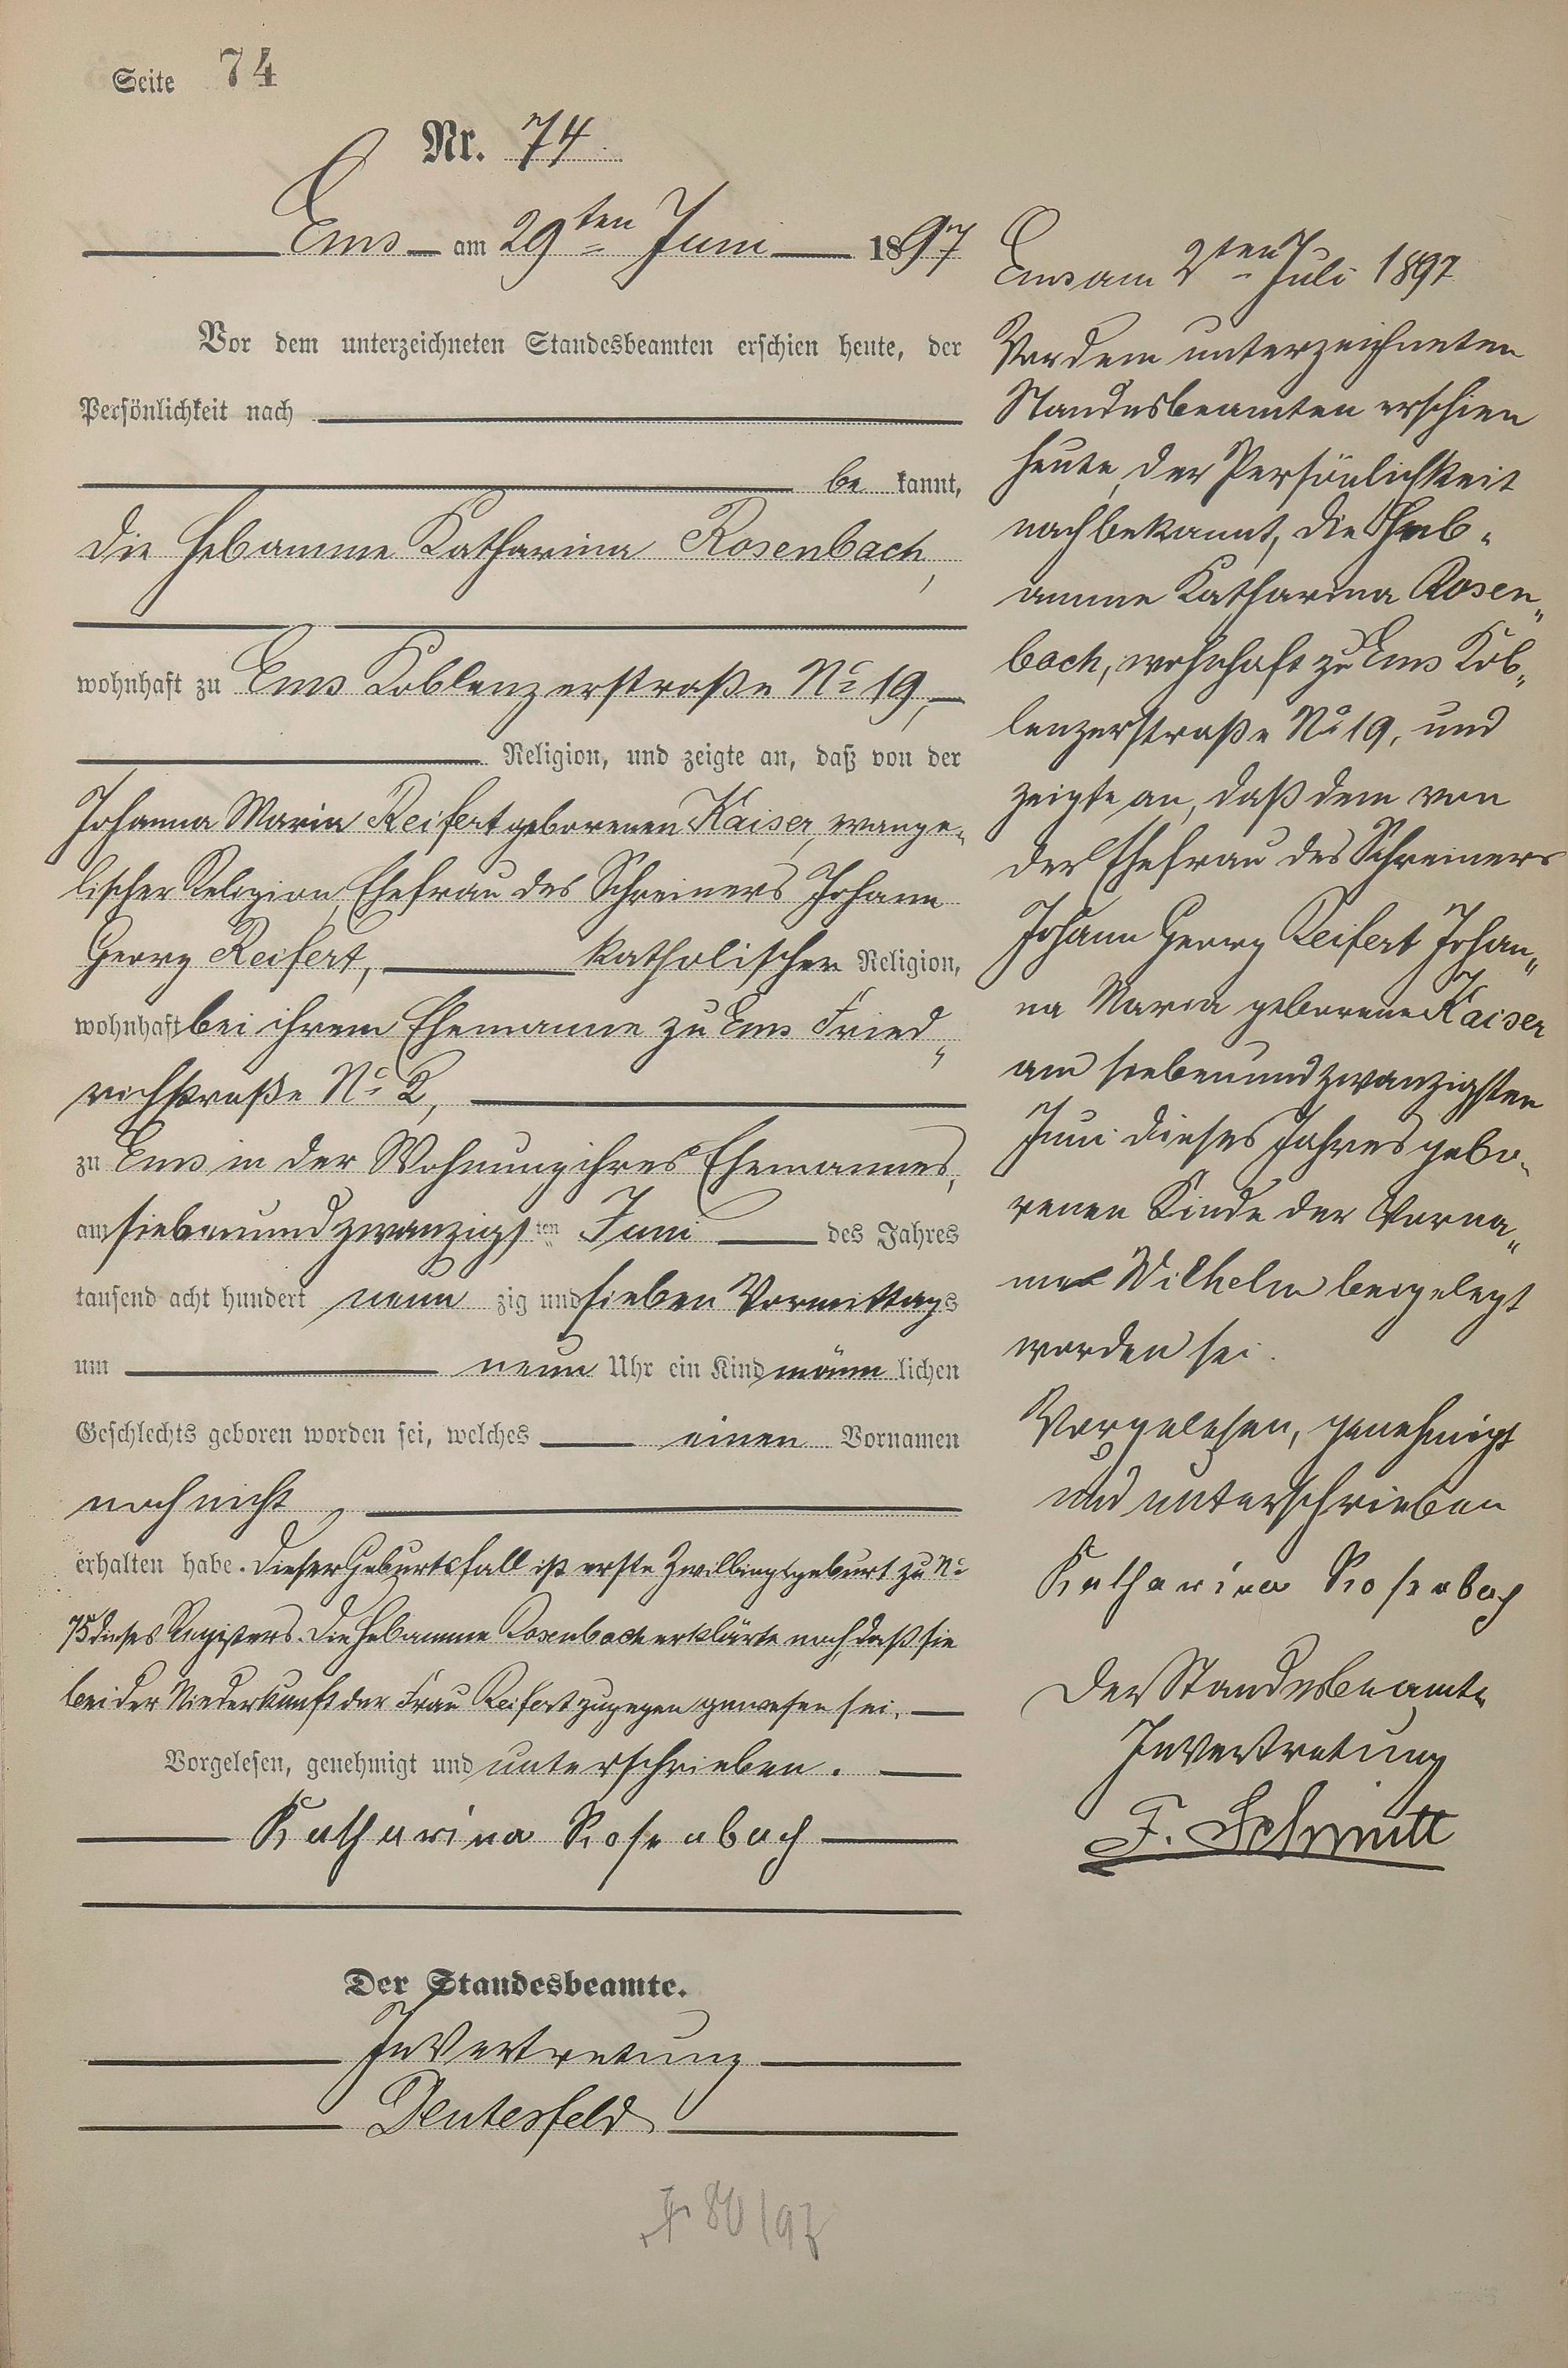 Seite 74
Nr. 74
Ems am 29ten Juni 1897
Vor dem unterzeichneten Standesbeamten erschien heute, der
Persönlichkeit nach
be kannt,
die Hebamme Katharina Rosenbach,
wohnhaft zu Ems Koblenzerstraße No 19,
Religion, und zeigte an, daß von der
Johanna Maria Reifert geborenen Kaiser, evange-
lischer Religion, Ehefrau des Schreiners Johann
Georg Reifert, katholischer Religion,
wohnhaft bei ihrem Ehemanne zu Ems Fried„
richstraße No 2,
zu Ems in der Wohnung ihres Ehemannes,
am siebenundzwanzigsten Juni des Jahres
tausend acht hundert neun zig und sieben Vormittags
um neun Uhr ein Kind männ lichen
Geschlechts geboren worden sei, welches einen Vornamen
noch nicht
erhalten habe. Dieser Geburtsfall ist erste Zwillingsgeburt zu No
75 dieses Registers. Die Hebamme Rosenbach erklärte noch, daß sie
bei der Niederkunft der Frau Reifert zugegen gewesen sei.
Vorgelesen, genehmigt und unterschrieben.
Katharina Rosenbach
Der Standesbeamte.
In Vertretung
Deutesfeld
80/97
Ems am 2ten Juli 1897
Vor dem unterzeichneten
Standesbeamten erschien
heute, der Persönlichkeit
nach bekannt, die Heb-
amme Katharina Rosen„
bach, wohnhaft zu Ems Kob„
lenzerstraße No 19, und
zeigte an, daß dem von
der Ehefrau des Schreiners
Johann Georg Reifert Johan„
na Maria geborene Kaiser
am siebenundzwanzigsten
Juni dieses Jahres gebo-
renen Kinde der Vorna„
me Wilhelm beigelegt
worden sei.
Vorgelesen, genehmigt
und unterschrieben
Katharina Rosenbach
Der Standesbeamte
In Vertretung
F. Schmitt